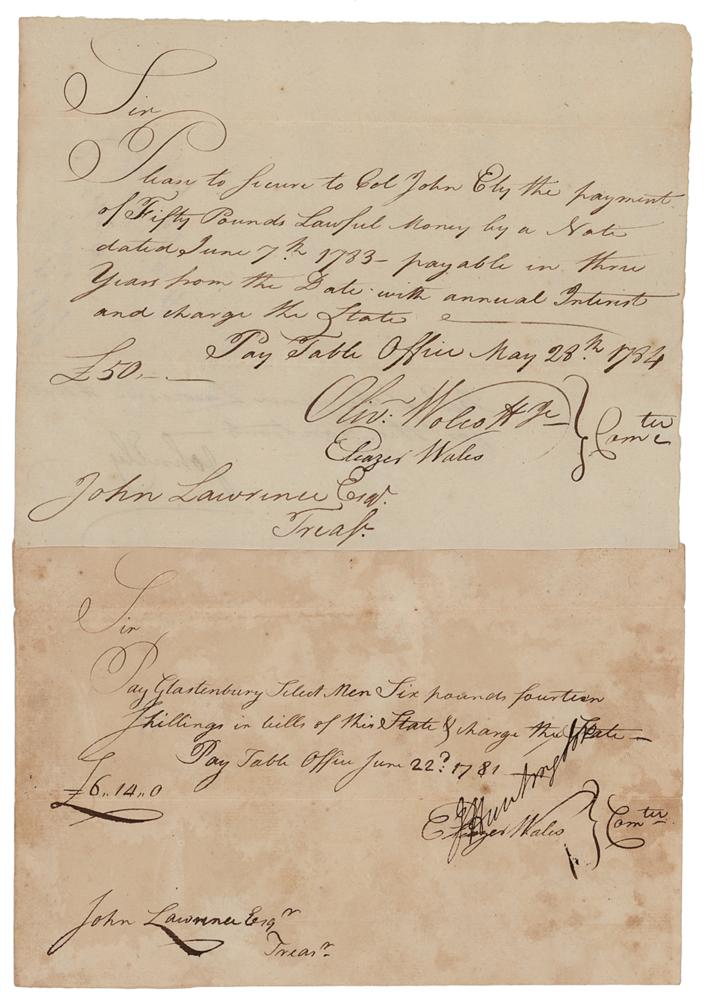 Sir
Please to secure to Col John Ely the payment
of Fifty Pounds Lawful Money by a Note
dated June 7.th 1783 – payable in three
Years from the Date with annual Interest
and charge the State
Pay Table Office May 28.th 1784
£50,–
Olivr. Wolcott Jr
Eleazer Wales
} Comtee
John Lawrence Esqr.
Treasr.
Sir
Pay Glastenbury Select Men Six pounds fourteen
Shillings in bills of this State & charge the State –
Pay Table Office June 22d 1781
£6,,14,,0
Huntington
Eleazer Wales
} Comtee
John Lawrence Esqr
Treasr